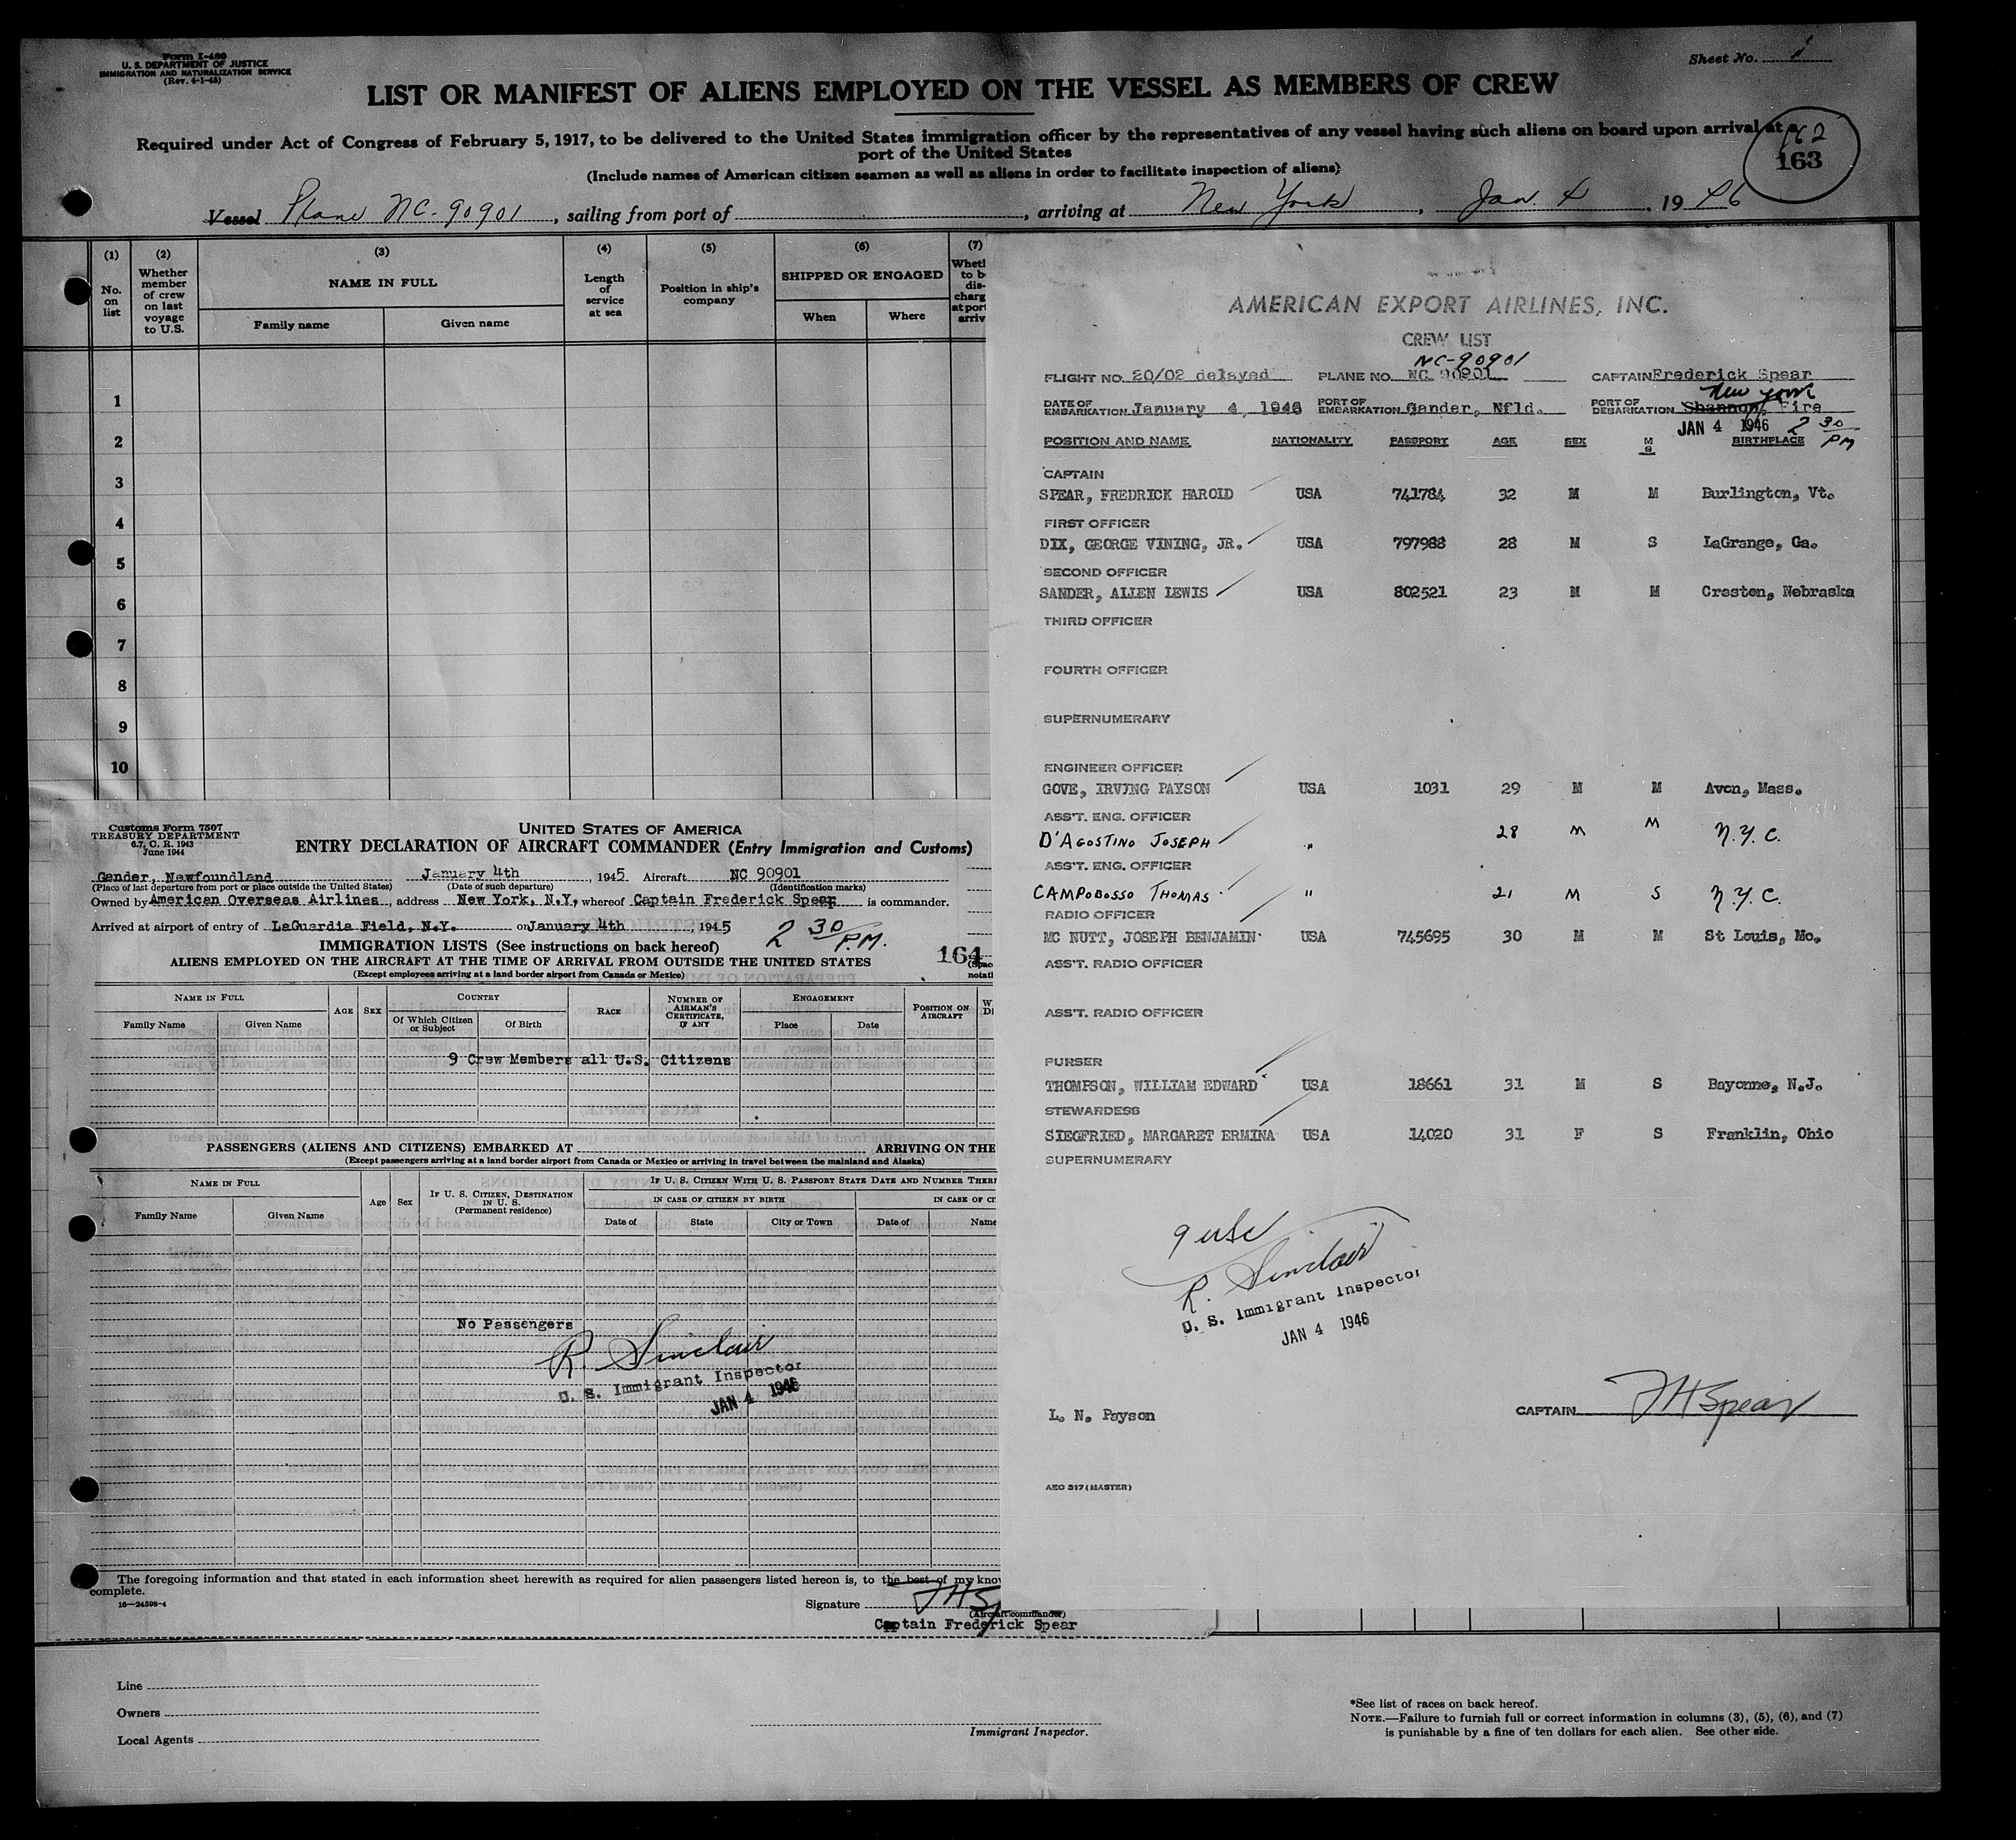 Form I-480
U. S. DEPARTMENT OF JUSTICE
IMMIGRATION AND NATURALIZATION SERVICE
(Rev. 4-1-45)
Sheet No. 1
LIST OR MANIFEST OF ALIENS EMPLOYED ON THE VESSEL AS MEMBERS OF CREW
Required under Act of Congress of February 5, 1917, to be delivered to the United States immigration officer by the representatives of any vessel having such aliens on board upon arrival at a
port of the United States
(Include names of American citizen seamen as well as aliens in order to facilitate inspection of aliens)
162
163
Vessel Plane NC-90901, sailing from port of , arriving at New York, Jan 4, 1946
(1) (2) (3) (4) (5) (6) (7)
No. on list
Whether member of crew on last voyage to U.S.
NAME IN FULL
Family name Given name
Length of service at sea
Position in ship's company
SHIPPED OR ENGAGED
When Where
1
2
3
4
5
6
7
8
9
10
AMERICAN EXPORT AIRLINES, INC.
CREW LIST
NC-90901
FLIGHT NO. 20/02 delayed PLANE NO. NC 90901 CAPTAIN Frederick Spear
New York
DATE OF EMBARKATION January 4, 1946 PORT OF EMBARKATION Gander, Nfld. PORT OF DEBARKATION Shannon, Eire
JAN 4 1946 2 30 PM
POSITION AND NAME NATIONALITY PASSPORT AGE SEX M S BIRTHPLACE
CAPTAIN
SPEAR, FREDRICK HAROLD USA 741784 32 M M Burlington, Vt.
FIRST OFFICER
DIX, GEORGE VINING, JR. USA 797988 28 M S LaGrange, Ga.
SECOND OFFICER
SANDER, ALLEN LEWIS USA 802521 23 M M Creston, Nebraska
THIRD OFFICER
FOURTH OFFICER
SUPERNUMERARY
ENGINEER OFFICER
GOVE, IRVING PAYSON USA 1031 29 M M Avon, Mass.
ASS'T. ENG. OFFICER
D'AGOSTINO JOSEPH " 28 M M N.Y.C.
ASS'T. ENG. OFFICER
CAMPOBOSSO THOMAS " 21 M S N.Y.C.
RADIO OFFICER
MC NUTT, JOSEPH BENJAMIN USA 745695 30 M M St Louis, Mo.
ASS'T. RADIO OFFICER
ASS'T. RADIO OFFICER
PURSER
THOMPSON, WILLIAM EDWARD USA 18661 31 M S Bayonne, N.J.
STEWARDESS
SIEGFRIED, MARGARET ERMINA USA 14020 31 F S Franklin, Ohio
SUPERNUMERARY
9 USC
R. Sinclair
U. S. Immigrant Inspector
JAN 4 1946
L. N. Payson
CAPTAIN FHSpear
AEO 317 (MASTER)
Customs Form 7507
TREASURY DEPARTMENT
6.7, C. R. 1943
June 1944
UNITED STATES OF AMERICA
ENTRY DECLARATION OF AIRCRAFT COMMANDER (Entry Immigration and Customs)
Gander, Newfoundland January 4th, 1945 Aircraft NC 90901
(Place of last departure from port or place outside the United States) (Date of such departure) (Identification marks)
Owned by American Overseas Airlines, address New York, N.Y, whereof Captain Frederick Spear is commander.
Arrived at airport of entry of LaGuardia Field, N.Y. on January 4th, 1945 2 30 P.M.
IMMIGRATION LISTS (See instructions on back hereof)
164
ALIENS EMPLOYED ON THE AIRCRAFT AT THE TIME OF ARRIVAL FROM OUTSIDE THE UNITED STATES
(Except employees arriving at a land border airport from Canada or Mexico)
NAME IN FULL AGE SEX COUNTRY RACE NUMBER OF AIRMAN'S CERTIFICATE, IF ANY ENGAGEMENT POSITION ON AIRCRAFT
Family Name Given Name Of Which Citizen or Subject Of Birth Place Date
9 Crew Members all U.S. Citizens
PASSENGERS (ALIENS AND CITIZENS) EMBARKED AT ARRIVING ON THE
(Except passengers arriving at a land border airport from Canada or Mexico or arriving in travel between the mainland and Alaska)
NAME IN FULL Age Sex IF U. S. CITIZEN, DESTINATION IN U. S. (Permanent residence) IF U. S. CITIZEN WITH U. S. PASSPORT STATE DATE AND NUMBER THERE
IN CASE OF CITIZEN BY BIRTH IN CASE OF CI
Family Name Given Name Date of State City or Town Date of Name
No Passengers
R. Sinclair
U. S. Immigrant Inspector
JAN 4 1946
The foregoing information and that stated in each information sheet herewith as required for alien passengers listed hereon is, to the best of my know
complete.
16-24598-4
Signature FHSp
(Aircraft commander)
Captain Frederick Spear
Line
Owners
Local Agents
Immigrant Inspector.
*See list of races on back hereof.
NOTE.—Failure to furnish full or correct information in columns (3), (5), (6), and (7)
is punishable by a fine of ten dollars for each alien. See other side.